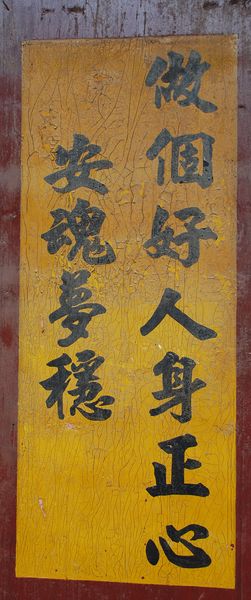 做個好人身正心
安魂夢穩